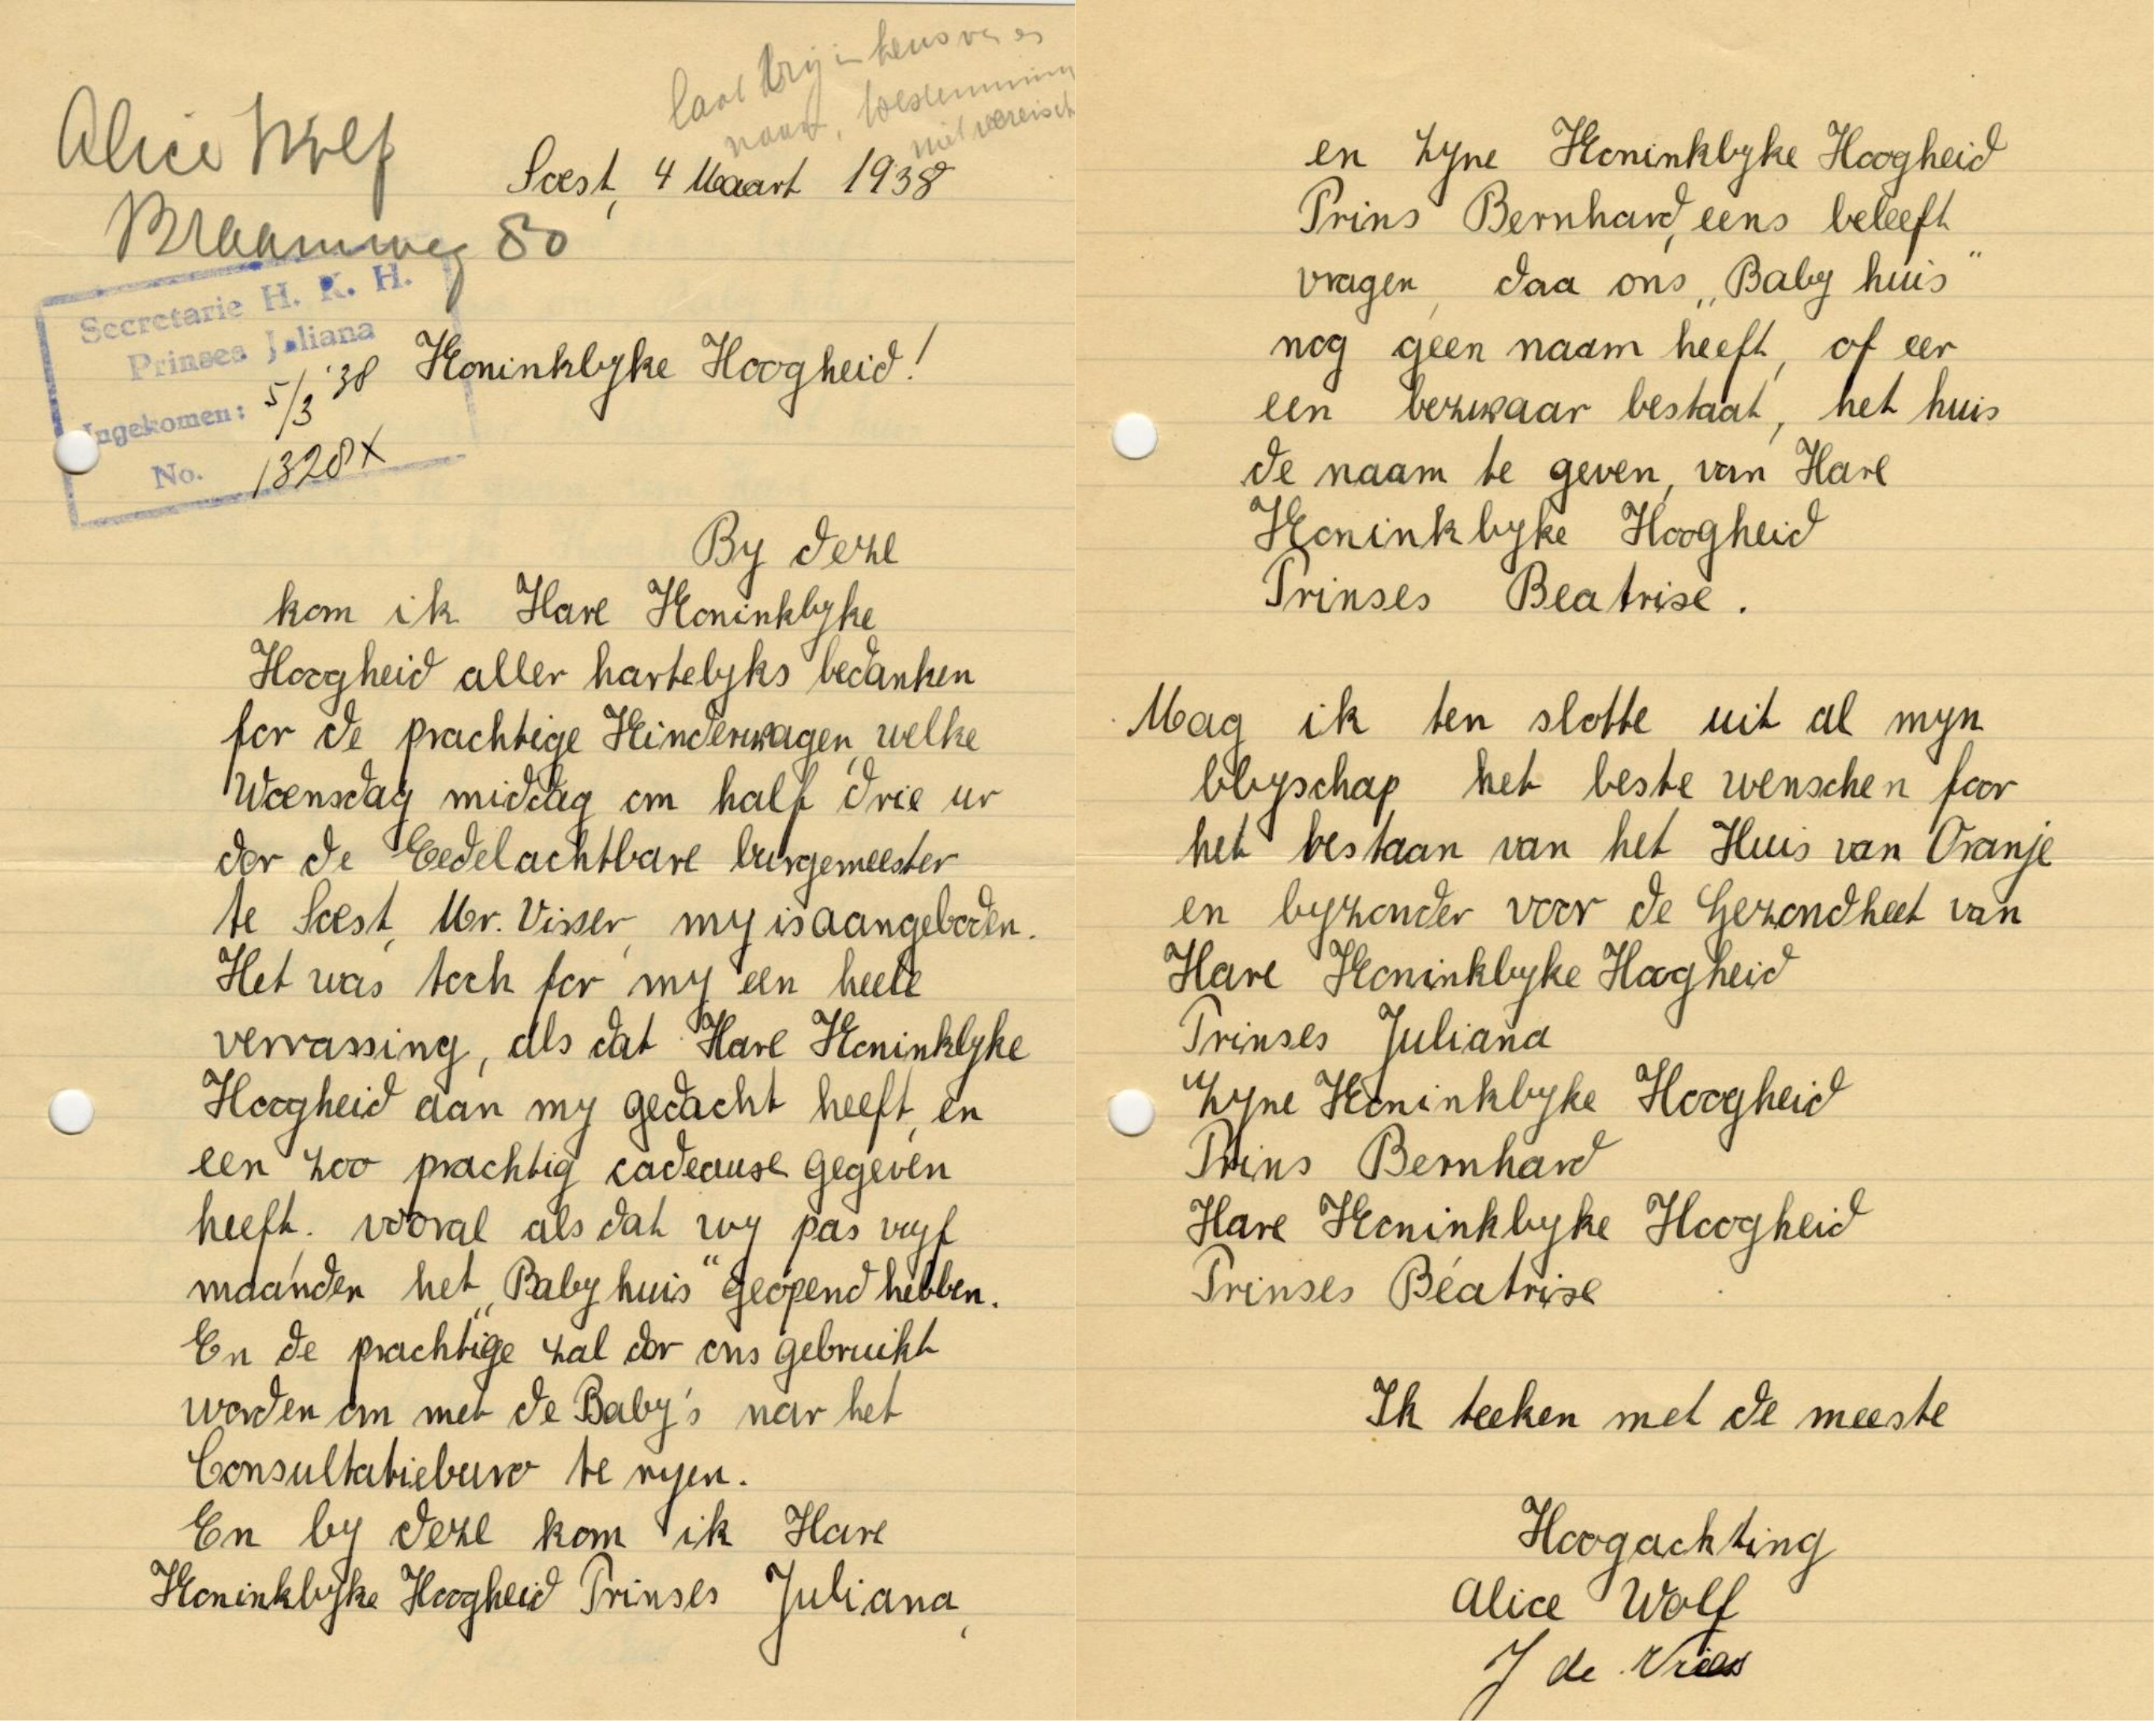 laat vrij in keus van
naam, toestemming
niet vereischt
Alice Wolf
Braamweg 80
Soest, 4 Maart 1938
Secretarie H. K. H.
Prinses Juliana
Ingekomen: 5/3 '38
No. 1328 X
Koninklyke Hoogheid!
By deze
kom ik Hare Koninklyke
Hoogheid aller hartelyks bedanken
for de prachtige Kinderwagen, welke
Woensdag middag om half drie ur
dor de Eedelachtbare burgemeester
te Soest, Mr. Visser, my is aangeboden.
Het was toch for my een heele
verrassing, als dat Hare Koninklyke
Hoogheid aan my gedacht heeft, en
een zoo prachtig cadeause gegeven
heeft. vooral als dat wy pas vyf
maanden het „Baby huis" geopend hebben.
En de prachtige zal dor ons gebruikt
worden om met de Baby's nar het
Consultatieburo te ryen.
En by deze kom ik Hare
Koninklyke Hoogheid Prinses Juliana,
en Zyne Koninklyke Hoogheid
Prins Bernhard, eens beleeft
vragen, daa ons „Baby huis"
nog geen naam heeft, of eer
een bezwaar bestaat, het huis
de naam te geven, van Hare
Koninklyke Hoogheid
Prinses Beatrise.
Mag ik ten slotte uit al myn
blyschap het beste wenschen foor
het bestaan van het Huis van Oranje
en byzonder voor de Gezondheet van
Hare Koninklyke Hoogheid
Prinses Juliana
Zyne Koninklyke Hoogheid
Prins Bernhard
Hare Koninklyke Hoogheid
Prinses Béatrise
Ik teeken met de meeste
Hoogachting
Alice Wolf
J de Vries